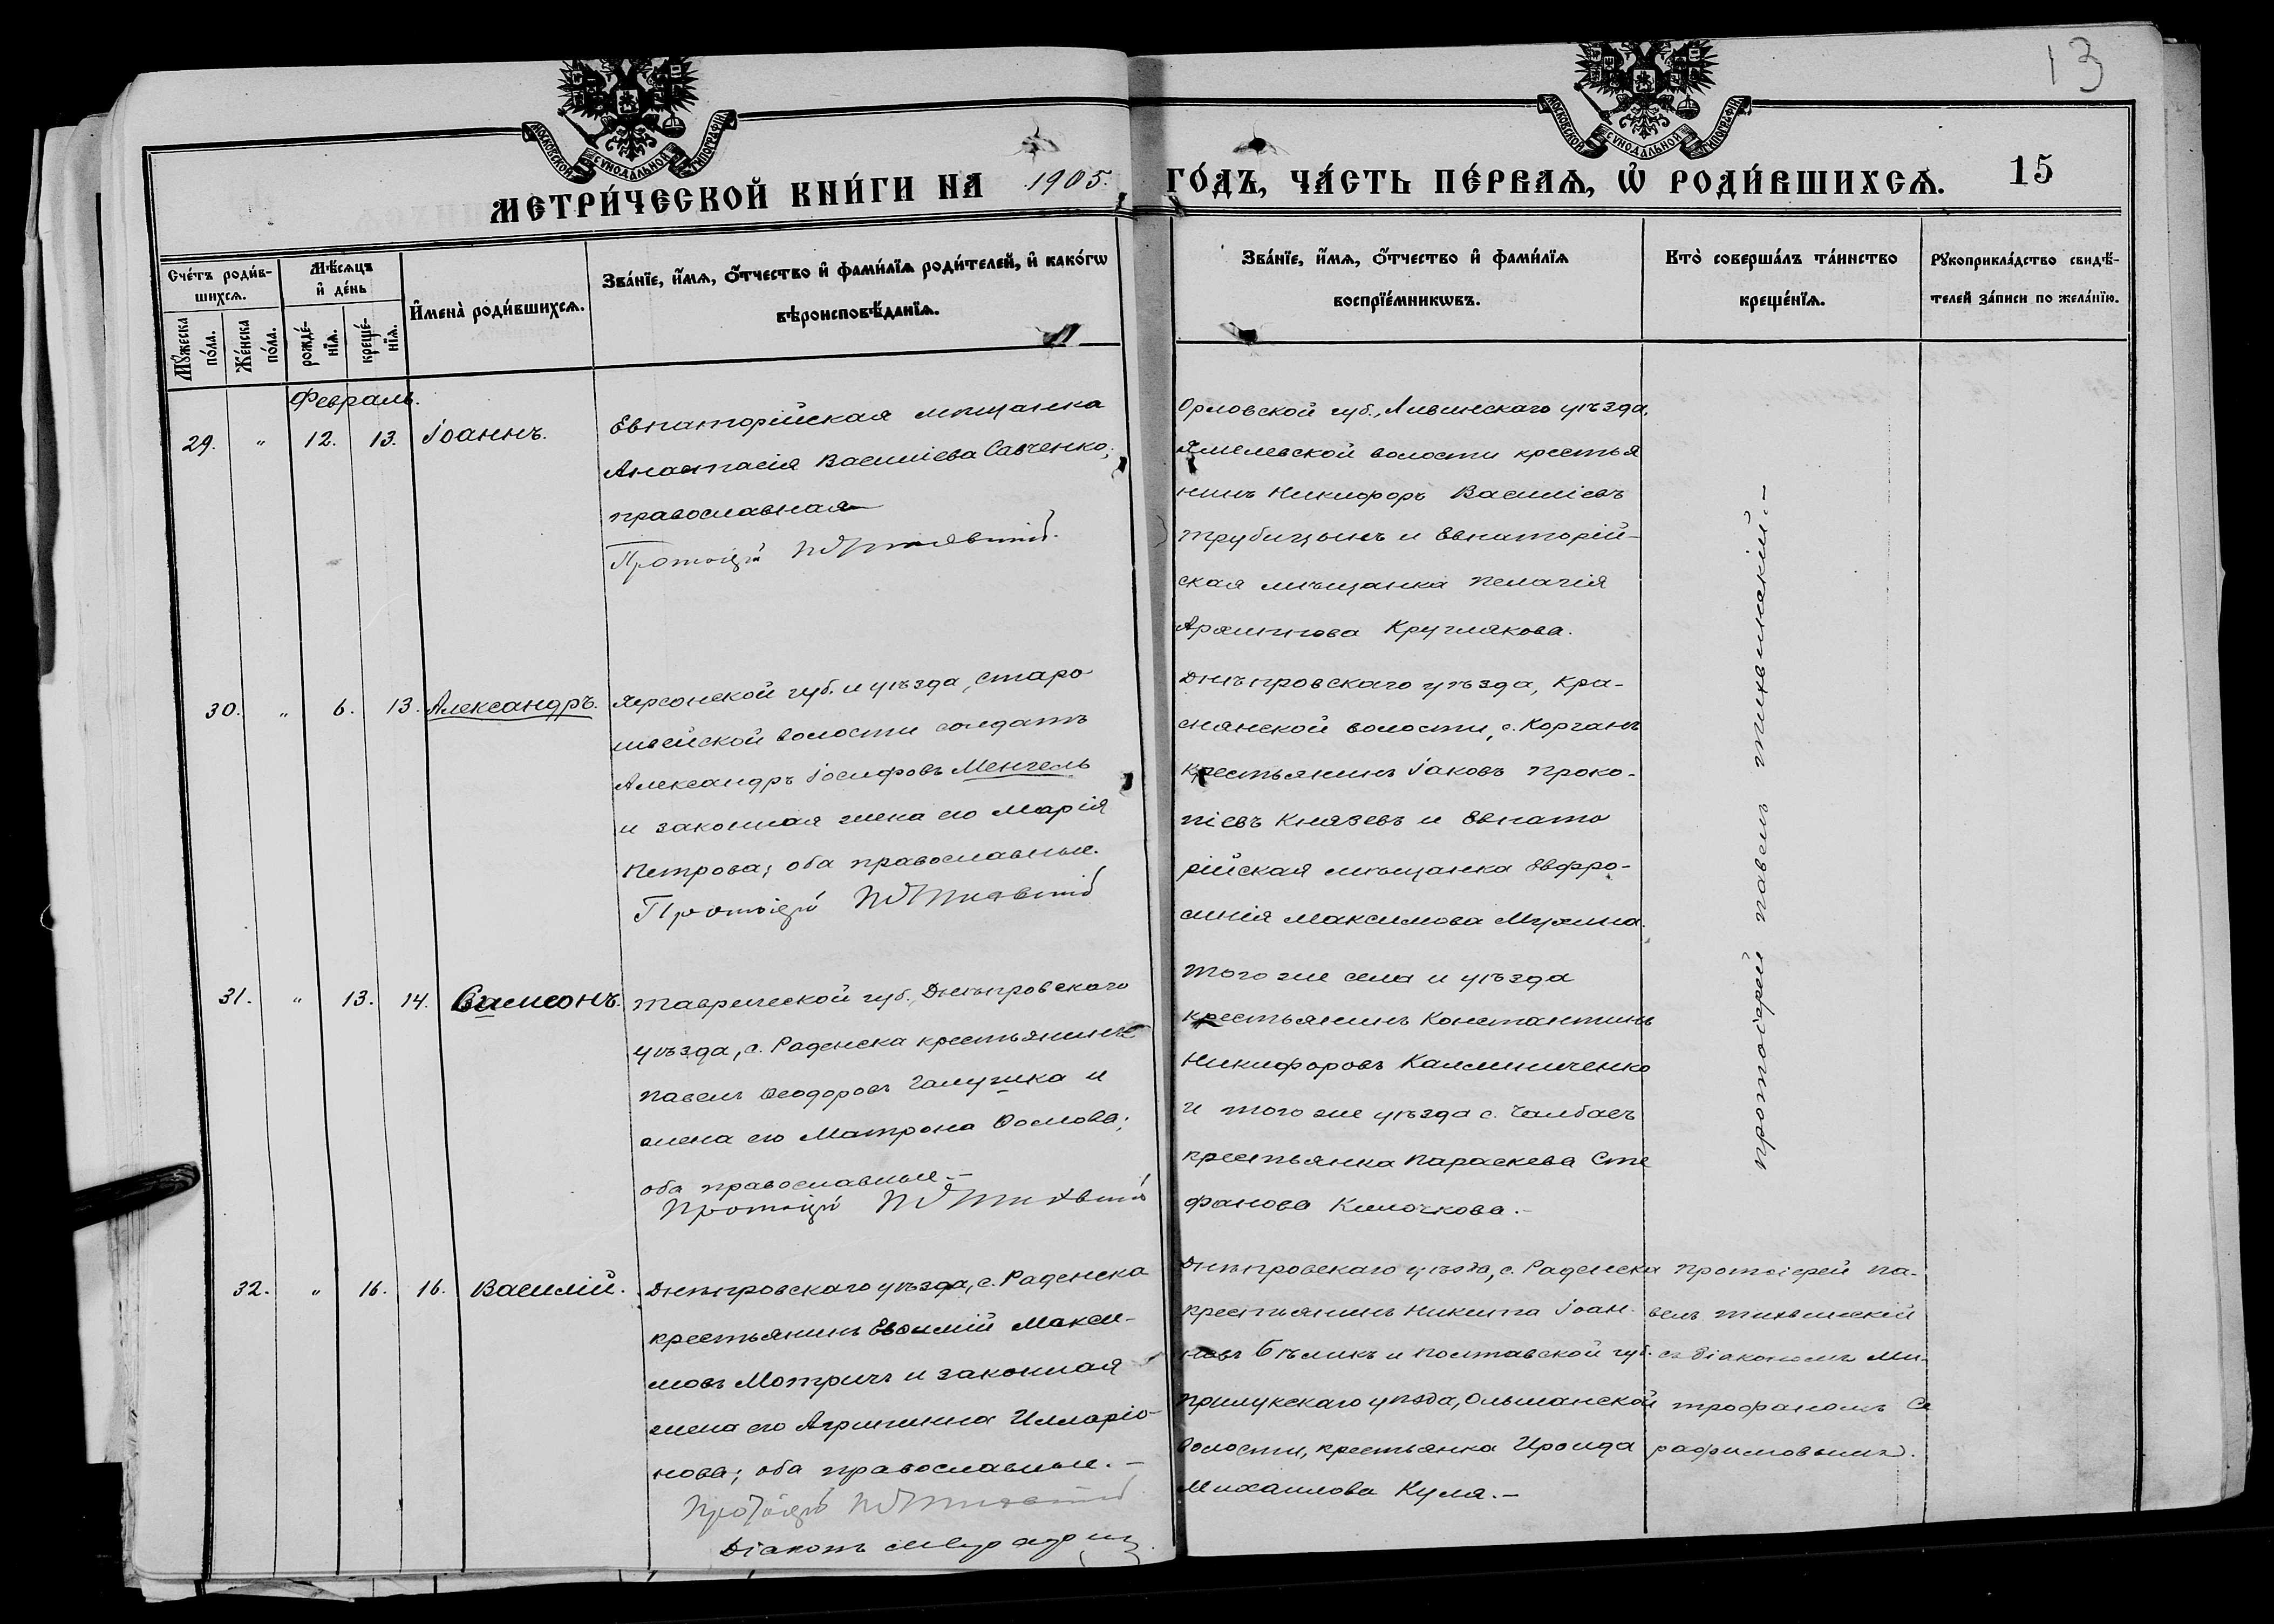 13
МОСКОВСКОЙ СѴНОДАЛЬНОЙ ТИПОГРАФІИ
МОСКОВСКОЙ СѴНОДАЛЬНОЙ ТИПОГРАФІИ
МЕТРИ́ЧЕСКОЙ КНИ́ГИ НА 1905. ГО́ДЪ, ЧА́СТЬ ПЕ́РВАѦ, Ѡ҆ РОДИ́ВШИХСѦ. 15
Сче́тъ роди́в-
шихсѧ.
Мꙋ́жеска
по́ла.
Же́нска
по́ла.
Мѣ́сѧцъ
и҆ де́нь
рожде́-
нїѧ.
креще́-
нїѧ.
И҆мена̀ роди́вшихсѧ.
Зва́нїе, и҆́мѧ, ѻ҆́тчество и҆ фами́лїѧ роди́телей, и҆ како́гѡ
вѣроисповѣ́данїѧ.
Зва́нїе, и҆́мѧ, ѻ҆́тчество и҆ фами́лїѧ
воспрїе́мникѡвъ.
Кто̀ соверша́лъ та́инство
креще́нїѧ.
Рꙋкоприкла́дство свидѣ́-
телей за́писи по жела́нїю.
Февраль.
29. " 12. 13. Іоаннъ.
Евпаторійская мѣщанка
Анастасія Василіева Савченко;
православная
Протоіерей
Орловской губ., Ливенскаго уѣзда,
волости крестья
нинъ Никифоръ Василіевъ
Трубицынъ и Евпаторій-
ская мѣщанка Пелагія
Круглякова.
30. " 6. 13. Александръ.
Херсонской губ. и уѣзда, Старо
швейской волости солдатъ
Александръ Іосифовъ Менгель
и законная жена его Марія
Петрова; оба православные.
Протоіерей
Днѣпровскаго уѣзда, Кра-
снянской волости, с. Корганъ
крестьянинъ Іаковъ Проко-
піевъ Князевъ и Евпато
рійская мѣщанка Евфро-
синія Максимова Мухина.
31. " 13. 14. Сампсонъ.
Таврической губ., Днѣпровскаго
уѣзда, с. Раденска крестьянинъ
Павелъ Ѳеодоровъ Галушка и
жена его Матрона Ѳомова;
оба православные. -
Протоіерей
Того же села и уѣзда
крестьянинъ Константинъ
Никифоровъ Калиниченко
и того же уѣзда с. Чалбасъ
крестьянка Параскева Сте
фанова Климочкова. -
протоіерей Павелъ Тихвинскій. -
32. " 16. 16. Василій.
Днѣпровскаго уѣзда, с. Раденска
крестьянинъ Евѳимій Макси-
мовъ Мотричъ и законная
жена его Агрипина Илларіо-
нова; оба православные. -
Протоіерей
Діаконъ
Днѣпровскаго уѣзда, с. Раденска
крестьянинъ Никита Іоан-
новъ Бѣликъ и Полтавской губ.
Прилукскаго уѣзда, Ольшанской
волости, крестьянка Ироида
Михаилова Куля. -
Протоіерей Па-
велъ Тихвинскій
съ діакономъ Ми-
трофаномъ Се
рафимовымъ.